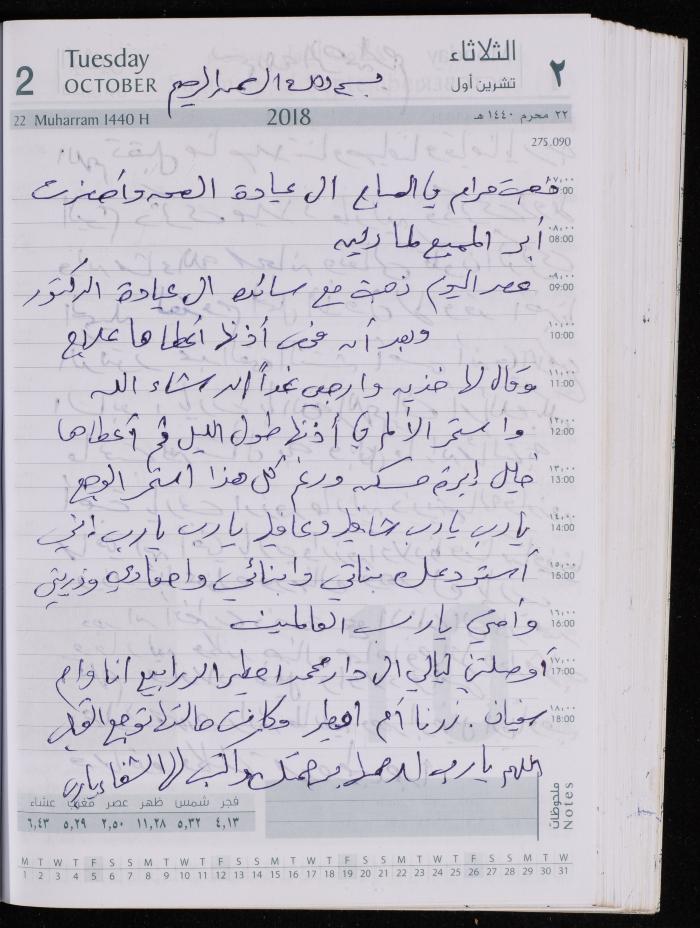 2 Tuesday OCTOBER
الثلاثاء ٢
تشرين أول
بسم الله الرحمن الرحيم
22 Muharram 1440 H 2018 ٢٢ محرم ١٤٤٠ هـ
275.090
٠٧,٠٠ 07:00
مرام في الصباح الى عيادة الصحه وأحضرت
٠٨,٠٠ 08:00
المميع لما
٠٩,٠٠ 09:00
عصر اليوم ذهبت مع سائده الى عيادة الدكتور
١٠,٠٠ 10:00
وبعد أن فحص أذنها أعطاها علاج
١١,٠٠ 11:00
وقال لها خذيه وارجعي غداً ان شاء الله
١٢,٠٠ 12:00
واستمر الألم في أذنها طول الليل ثم أعطاها
١٣,٠٠ 13:00
إبرة مسكنه ورغم كل هذا استمر الوجع
١٤,٠٠ 14:00
يارب يارب يارب يارب اني
١٥,٠٠ 15:00
أستودعك بناتي وابنائي واحفادي وذريتي
١٦,٠٠ 16:00
يارب العالمين
١٧,٠٠ 17:00
أوصلتني ليالي الى دار محمد الزرابيع انا وام
١٨,٠٠ 18:00
سفيان. زرنا أم وكانت حالتها توجع القلب
اللهم يارب برحمتك واكتب لها الشفاء يارب
ملحوظات Notes
فجر شمس ظهر عصر مغرب عشاء
٤,١٣ ٥,٣٢ ١١,٢٨ ٢,٥٠ ٥,٢٩ ٦,٤٣
M T W T F S S M T W T F S S M T W T F S S M T W T F S S M T W
1 2 3 4 5 6 7 8 9 10 11 12 13 14 15 16 17 18 19 20 21 22 23 24 25 26 27 28 29 30 31